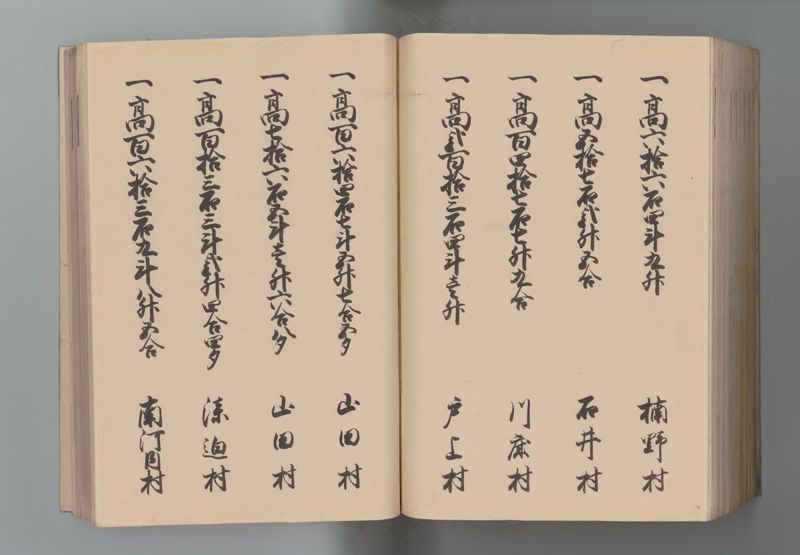 一高六拾六石四斗九升 楠野村
一高五拾七石弐升五合 石井村
一高百四拾七石七升九合 川床村
一高弐百拾三石四斗壱升 戸上村
一高百六拾四石七斗五升七合五夕 山田村
一高七拾六石五斗壱升六合八夕 山田村
一高百拾三石三斗弐升四合四夕 湊迫村
一高百六拾三石九斗八升五合 南河内村